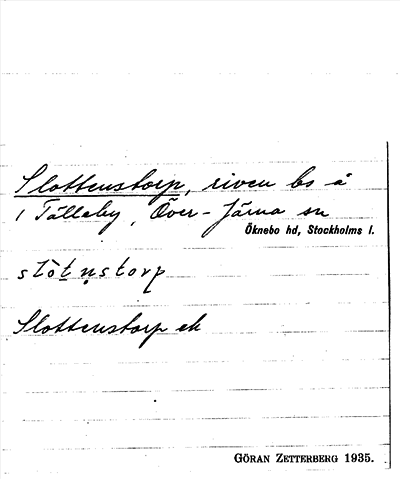 Slottenstorp, riven bs å
1 Tälleby, Över-Järna sn
Öknebo hd, Stockholms l.
slòtn̥storp
Slottenstorp ek
GÖRAN ZETTERBERG 1935.